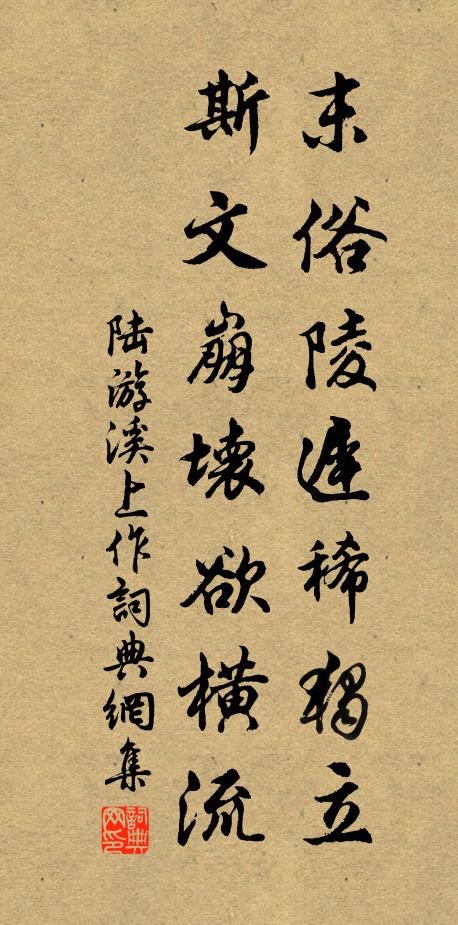 末俗陵遲稀獨立
斯文崩壞欲橫流
陆游溪上作詞典網集
詞典网印